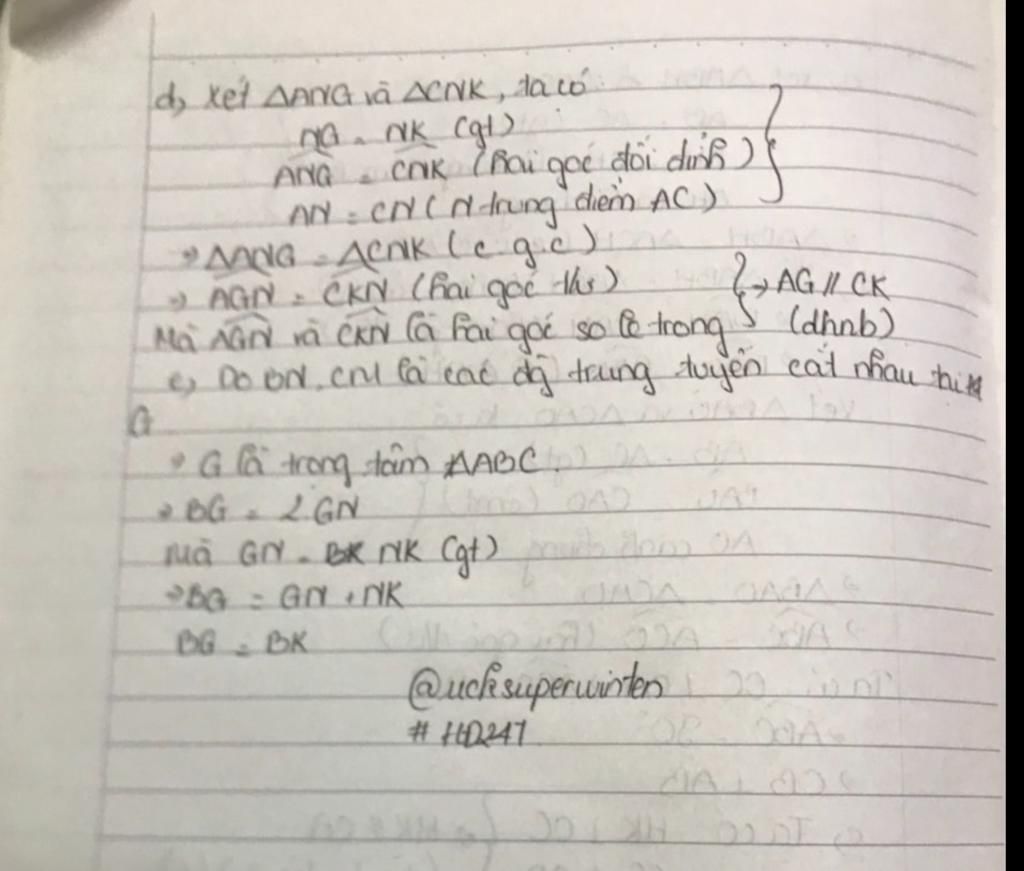 d, Xét ΔANG và ΔCNK, ta có:
NG = NK (gt)
ANG = CNK (hai góc đối đỉnh)
AN = CN (N trung điểm AC)
→ ΔANG = ΔCNK (c g.c)
→ AGN = CKN (hai góc t/ư) → AG // CK
Mà AGN và CKN là hai góc so le trong (dhnb)
e, Do BN, CM là các đg trung tuyến cắt nhau tại
G
→ G là trọng tâm ΔABC.
→ BG = 2 GN
Mà GN = NK (gt)
→ BG = GN + NK
BG = BK
@uchsuperwinten
# HD247